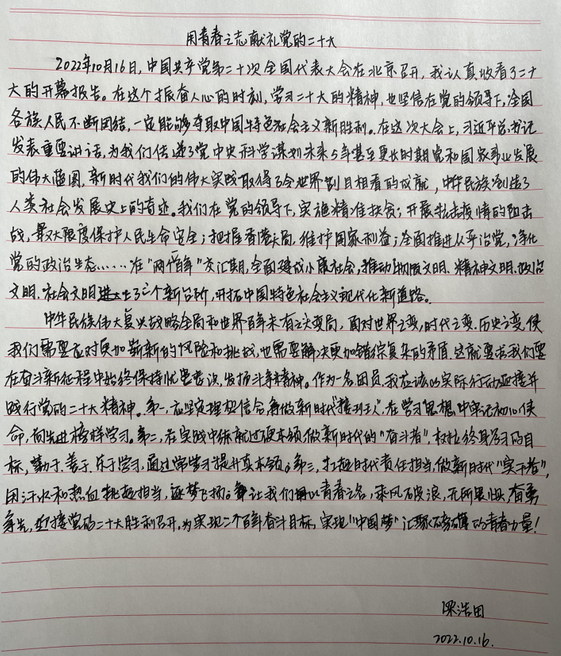 用青春之志献礼党的二十大
2022年10月16日，中国共产党第二十次全国代表大会在北京召开，我认真收看了二十
大的开幕报告。在这个振奋人心的时刻，学习二十大的精神，也坚信在党的领导下，全国
各族人民不断团结，一定能够夺取中国特色社会主义新胜利。在这次大会上，习近平总书记
发表重要讲话，为我们传递了党中央科学谋划未来5年甚至更长时期党和国家事业发展
的伟大蓝图，新时代我们的伟大实践取得了令世界刮目相看的成就，中华民族创造了
人类社会发展史上的奇迹。我们在党的领导下，实施精准扶贫；开展抗击疫情的阻击
战，最大限度保护人民生命安全；把握香港大局，维护国家利益；全面推进从严治党，净化
党的政治生态……在“两个百年”交汇期，全面建成小康社会，推动物质文明、精神文明、政治
文明、社会文明进入了三个新台阶，开拓中国特色社会主义现代化新道路。
中华民族伟大复兴战略全局和世界百年未有之大变局，面对世界之变，时代之变，历史之变，使
我们需要应对更加崭新的风险和挑战，也需要解决更加错综复杂的矛盾，这就要求我们要
在奋斗新征程中始终保持忧患意识，发扬斗争精神。作为一名团员，我应该以实际行动迎接并
践行党的二十大精神。第一，应坚定理想信念，争做新时代“接班人”，在学习思想中牢记初心使
命，向先进榜样学习。第二，在实践中练就过硬本领，做新时代的“奋斗者”，树立终身学习的目
标，勤于、善于、乐于学习，通过常学习提升真本领。第三，扛起时代责任担当，做新时代“实干者”，
用汗水和热血挑起担当，逐梦飞扬。让我们以青春之名，乘风破浪，无所畏惧，奋勇
争先，迎接党的二十大胜利召开，为实现二个百年奋斗目标，实现“中国梦”汇聚磅礴的青春力量！
梁浩田
2022.10.16.